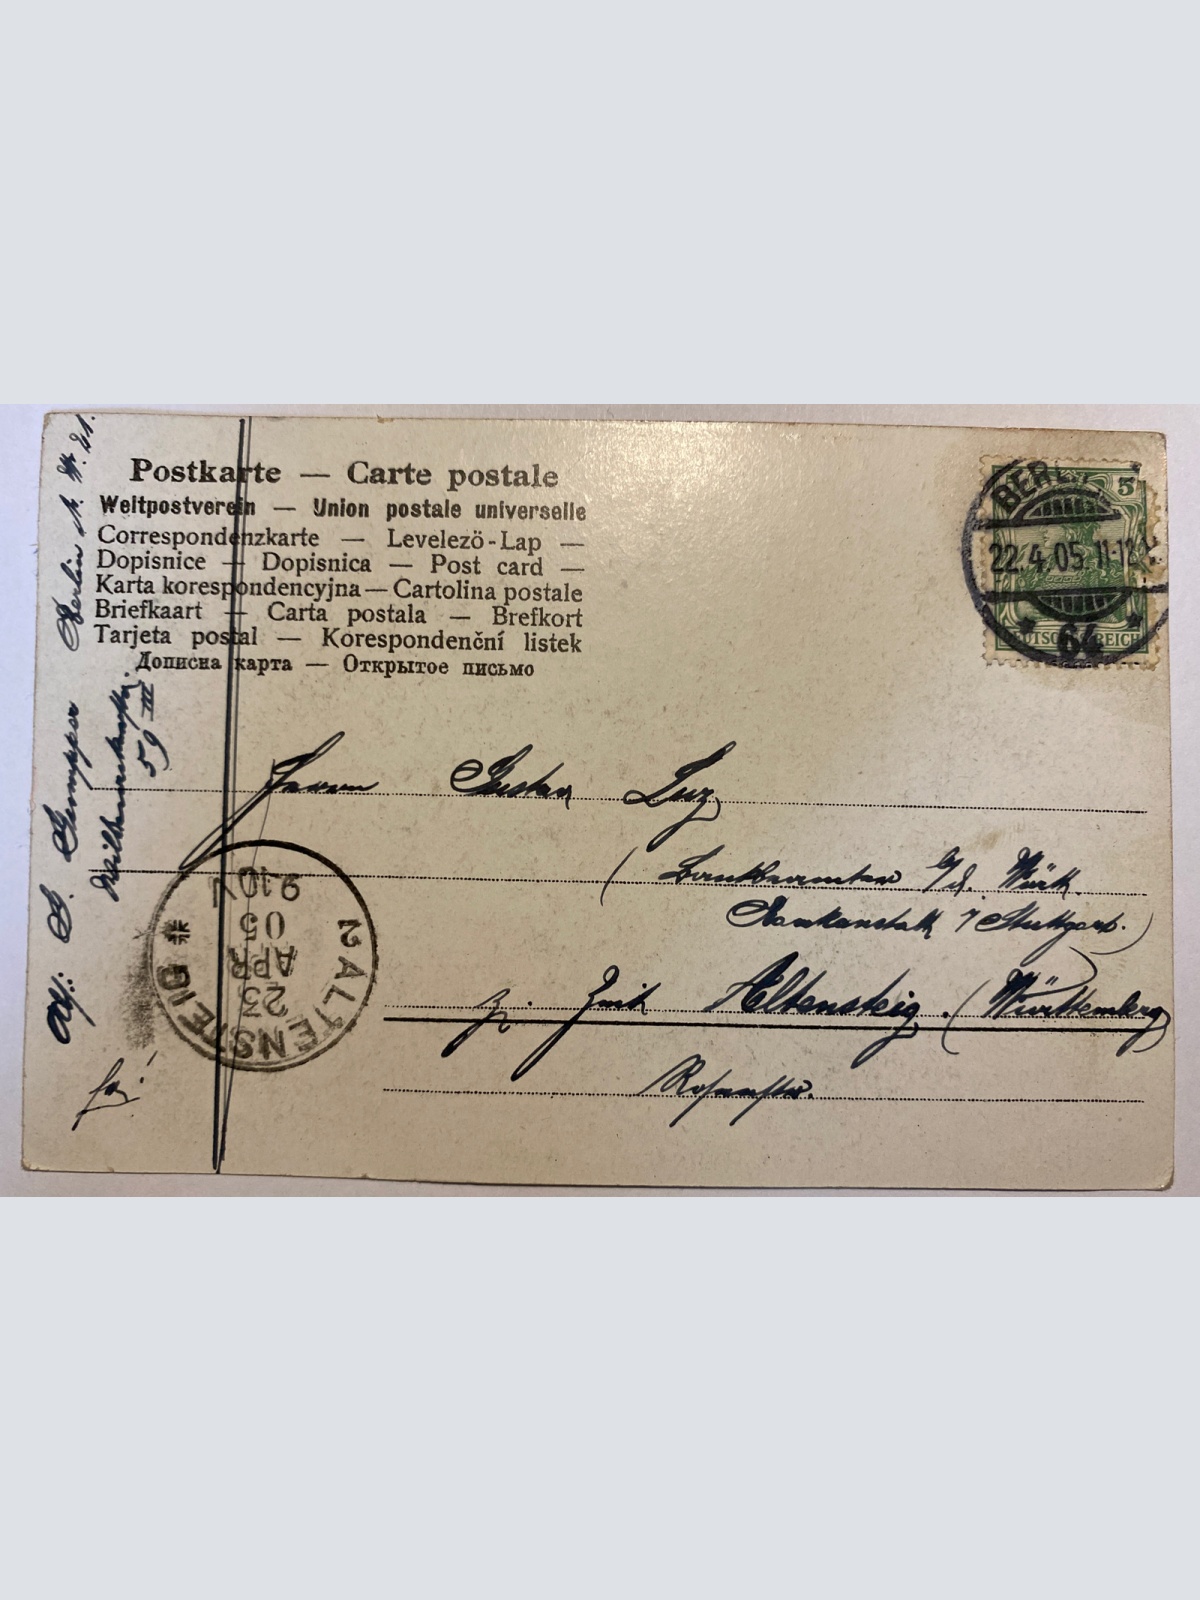 Postkarte — Carte postale
Weltpostverein — Union postale universelle
Correspondenzkarte — Levelező-Lap —
Dopisnice — Dopisnica — Post card —
Karta korespondencyjna — Cartolina postale
Briefkaart — Carta postala — Brefkort
Tarjeta postal — Korespondenční listek
Дописна карта — Открытое письмо
5
BERLIN
22.4.05 11-12 V.
* 64 *
DEUTSCHES REICH
Herrn Gustav Luz
(Bankbeamter b/d. Württ.
Bankanstalt i/Stuttgart.)
z. Zeit Altensteig. (Württemberg)
Rosenstr.
2 ALTENSTEIG
23
APR
05
9-10 V
Abs: G. Gompper Berlin N. W. 21.
59 III